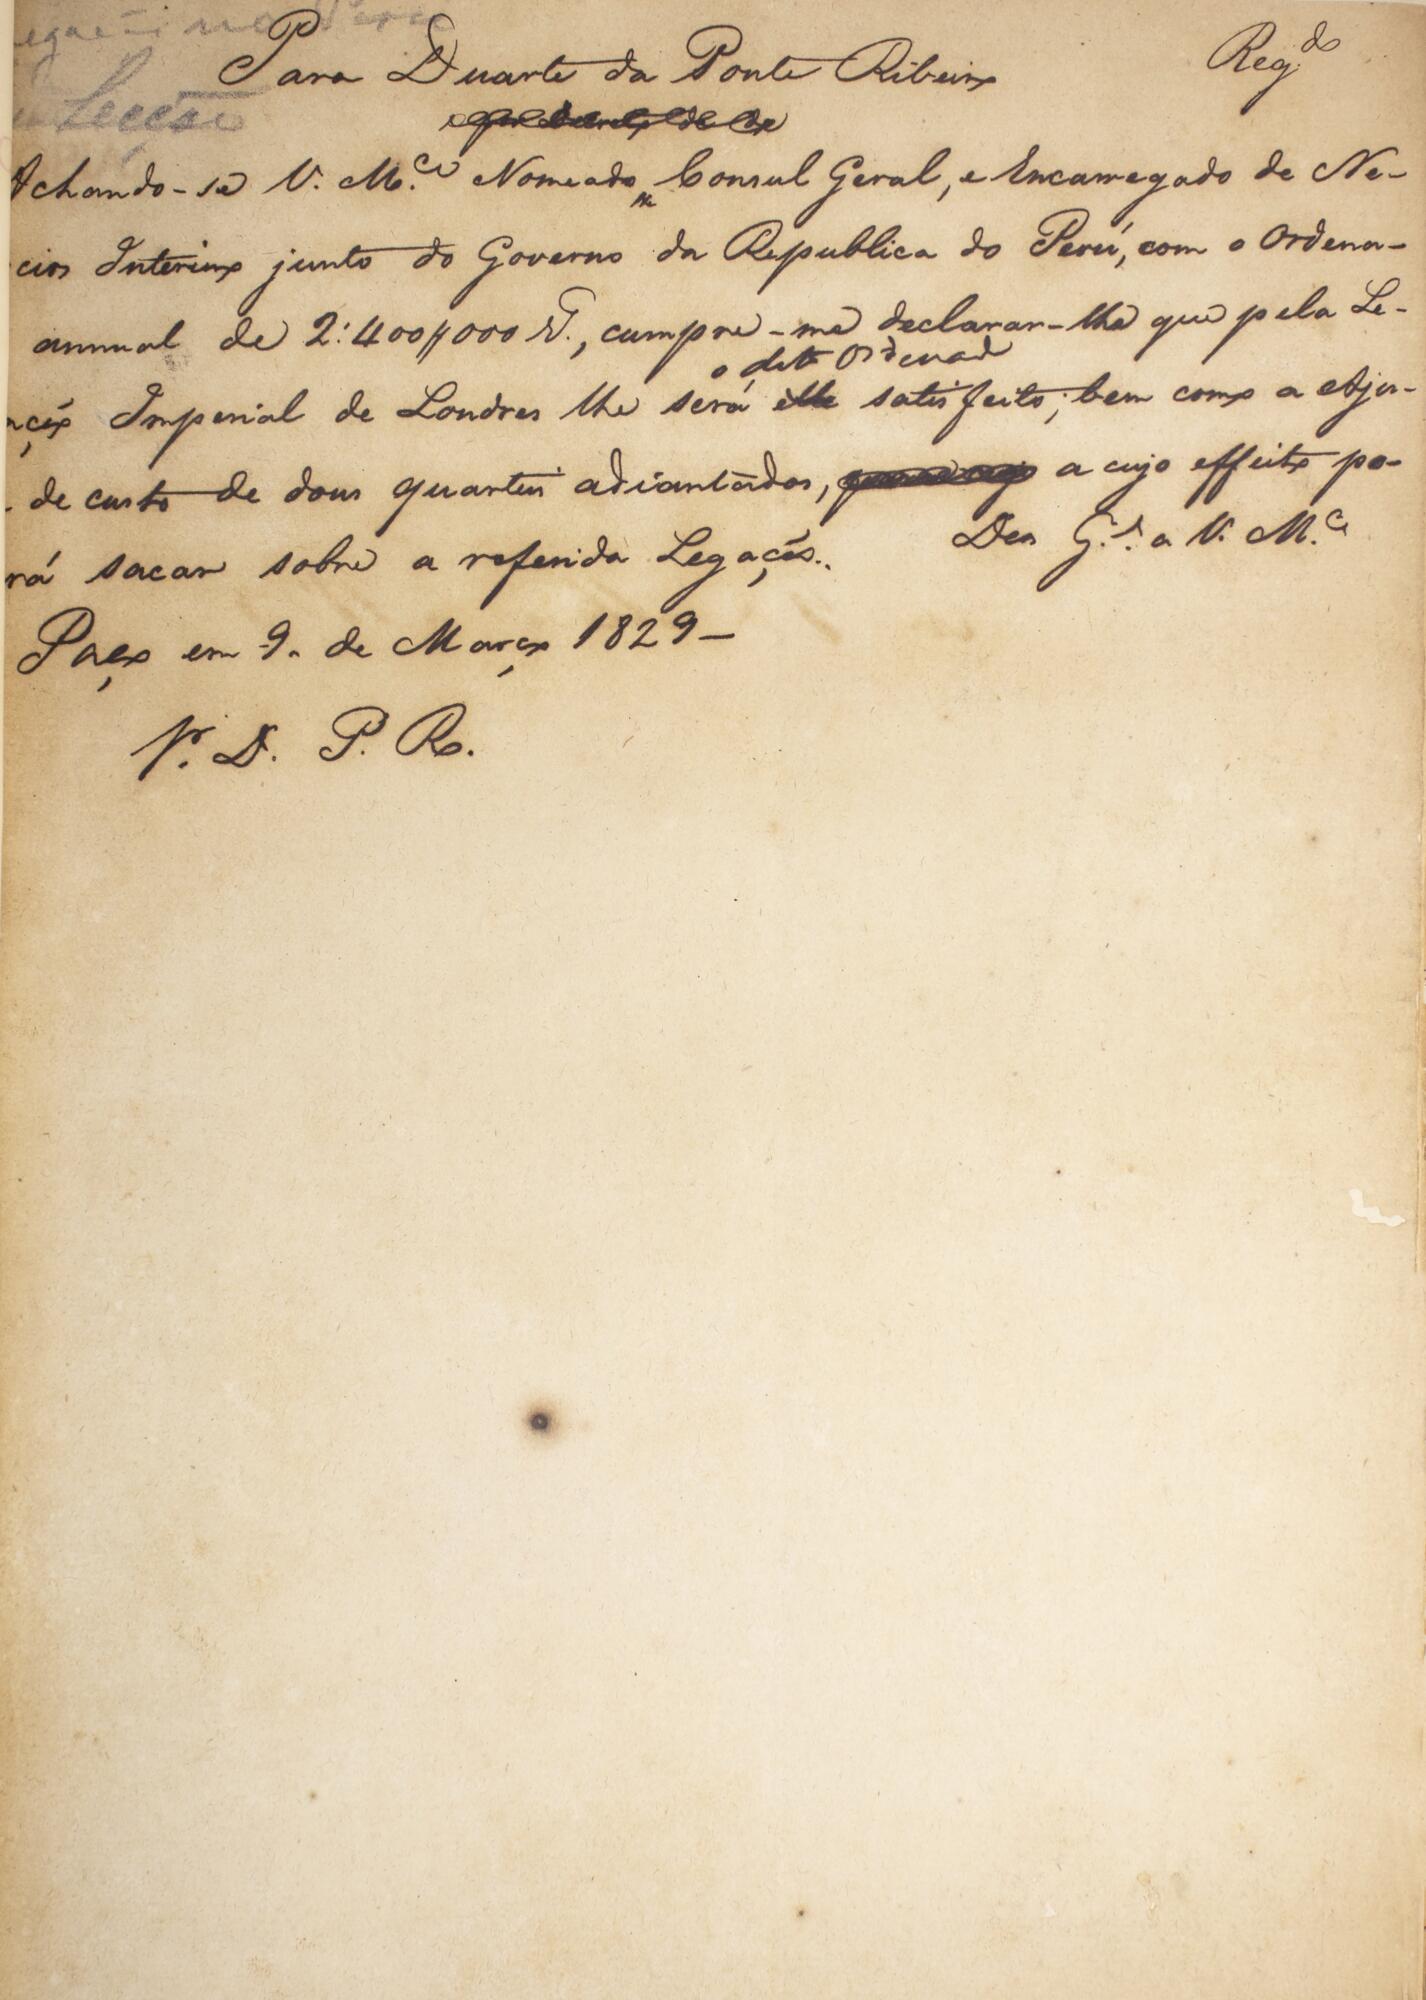 Legação no Perú
Secção
Reg.do
Para Duarte da Ponte Ribeiro
Achando-se V. M.ce Nomeado Consul Geral, e Encarregado de Ne-
cios Interino junto do Governo da Republica do Perú, com o Ordena-
annual de 2:400$000 r., cumpre-me declarar-lhe que pela Le-
o dito Ordenado
ação Imperial de Londres lhe será elle satisfeito; bem como a Aju-
de custo de dous quarteis adiantados, a cujo effeito po-
rá sacar sobre a referida Legação.. Deos G.e a V. M.ce
Paço em 9 de Março 1829 —
Sr. D. P. R.